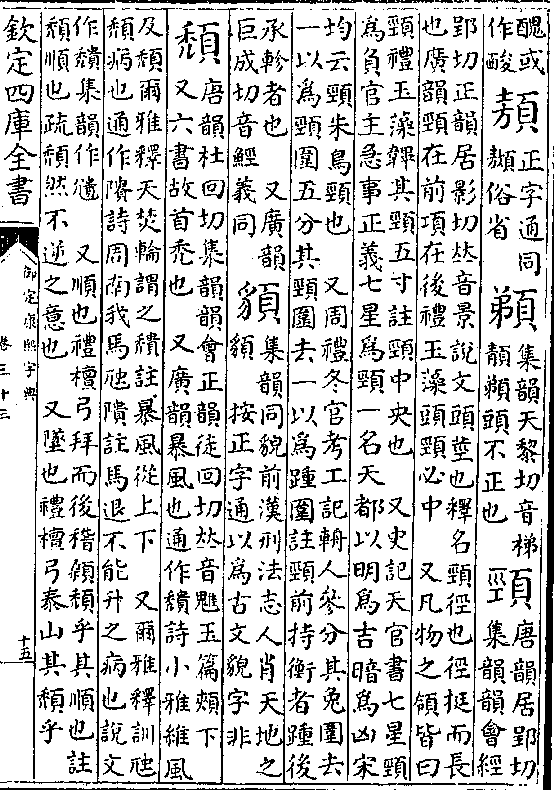 醜或
作酸
正字通同
纇俗省
集韻天黎切音梯
頭不正也
頸
唐韻居郢切
集韻韻會經
郢切正韻居影切𠀤音景說文頭莖也釋名頸徑也徑挺而長
也廣韻頸在前項在後禮玉藻頭頸必中 又凡物之領皆曰
頸禮玉藻鞸其頸五寸註頸中央也 又史記天官書七星頸
爲負官主急事正義七星爲頸一名天都以明爲吉暗爲凶宋
均云頸朱鳥頸也 又周禮冬官考工記輈人參分其兔圍去
一以爲頸圍五分其頸圍去一以爲踵圍註頸前持衡者踵後
承軫者也 又廣韻
巨成切音鯨義同
䫉
集韻同貌前漢刑法志人肖天地之
䫉 按正字通以爲古文貌字非
頽
唐韻杜回切集韻韻會正韻徒回切𠀤音魋玉篇頰下
又六書故首禿也 又廣韻暴風也通作穨詩小雅維風
及頽爾雅釋天焚輪謂之穨註暴風從上下 又爾雅釋訓虺
頽病也通作隤詩周南我馬虺隤註馬退不能升之病也說文
作穨集韻作 又順也禮檀弓拜而後稽顙頽乎其順也註
頽順也疏頽然不逆之意也 又墜也禮檀弓泰山其頽乎
欽定四庫全書
御定康熙字典
卷三十三
十五